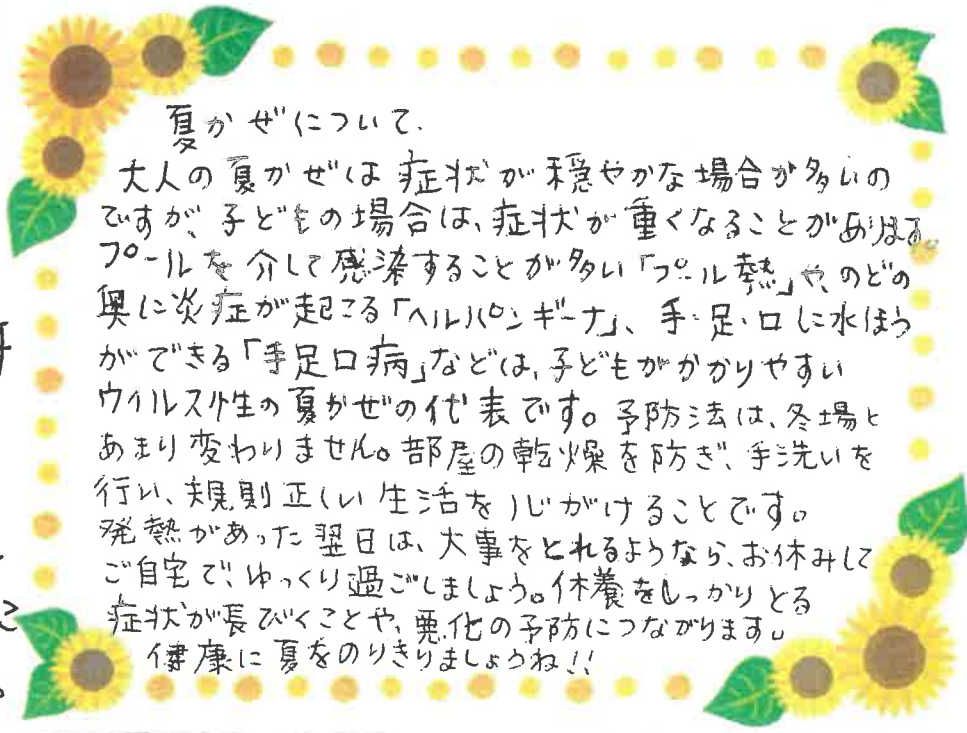 夏かぜについて.
大人の夏かぜは症状が穏やかな場合が多いの
ですが、子どもの場合は、症状が重くなることがあります。
プールを介して感染することが多い「プール熱」や、のどの
奥に炎症が起こる「ヘルパンギーナ」、手・足・口に水ほう
ができる「手足口病」などは、子どもがかかりやすい
ウイルス性の夏かぜの代表です。予防法は、冬場と
あまり変わりません。部屋の乾燥を防ぎ、手洗いを
行い、規則正しい生活を心がけることです。
発熱があった翌日は、大事をとれるようなら、お休みして
ご自宅で、ゆっくり過ごしましょう。休養をしっかりとる
症状が長びくことや、悪化の予防につながります。
健康に夏をのりきりましょうね!!